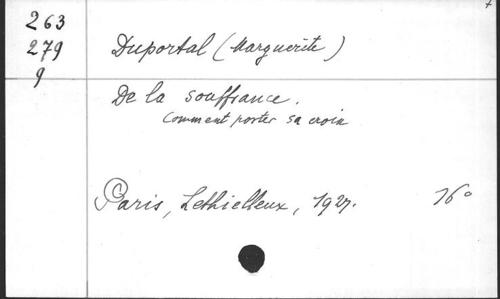 263
279
9
Duportal (Marguerite)
De la souffrance.
Comment porter sa croix
Paris, Lethielleux, 1927.
16°